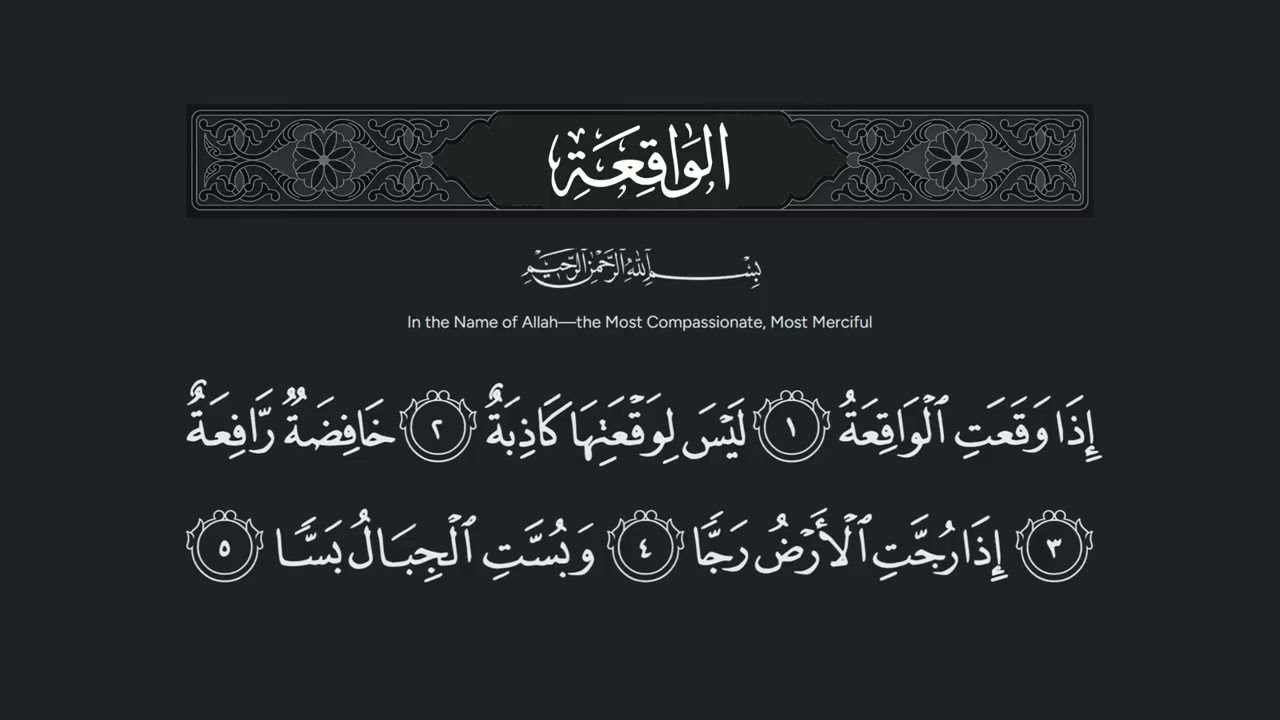 الوَاقِعَةِ
بِسْمِ ٱللَّهِ ٱلرَّحْمَٰنِ ٱلرَّحِيمِ
In the Name of Allah—the Most Compassionate, Most Merciful
إِذَا وَقَعَتِ ٱلْوَاقِعَةُ ١ لَيْسَ لِوَقْعَتِهَا كَاذِبَةٌ ٢ خَافِضَةٌ رَّافِعَةٌ
٣ إِذَا رُجَّتِ ٱلْأَرْضُ رَجًّا ٤ وَبُسَّتِ ٱلْجِبَالُ بَسًّا ٥